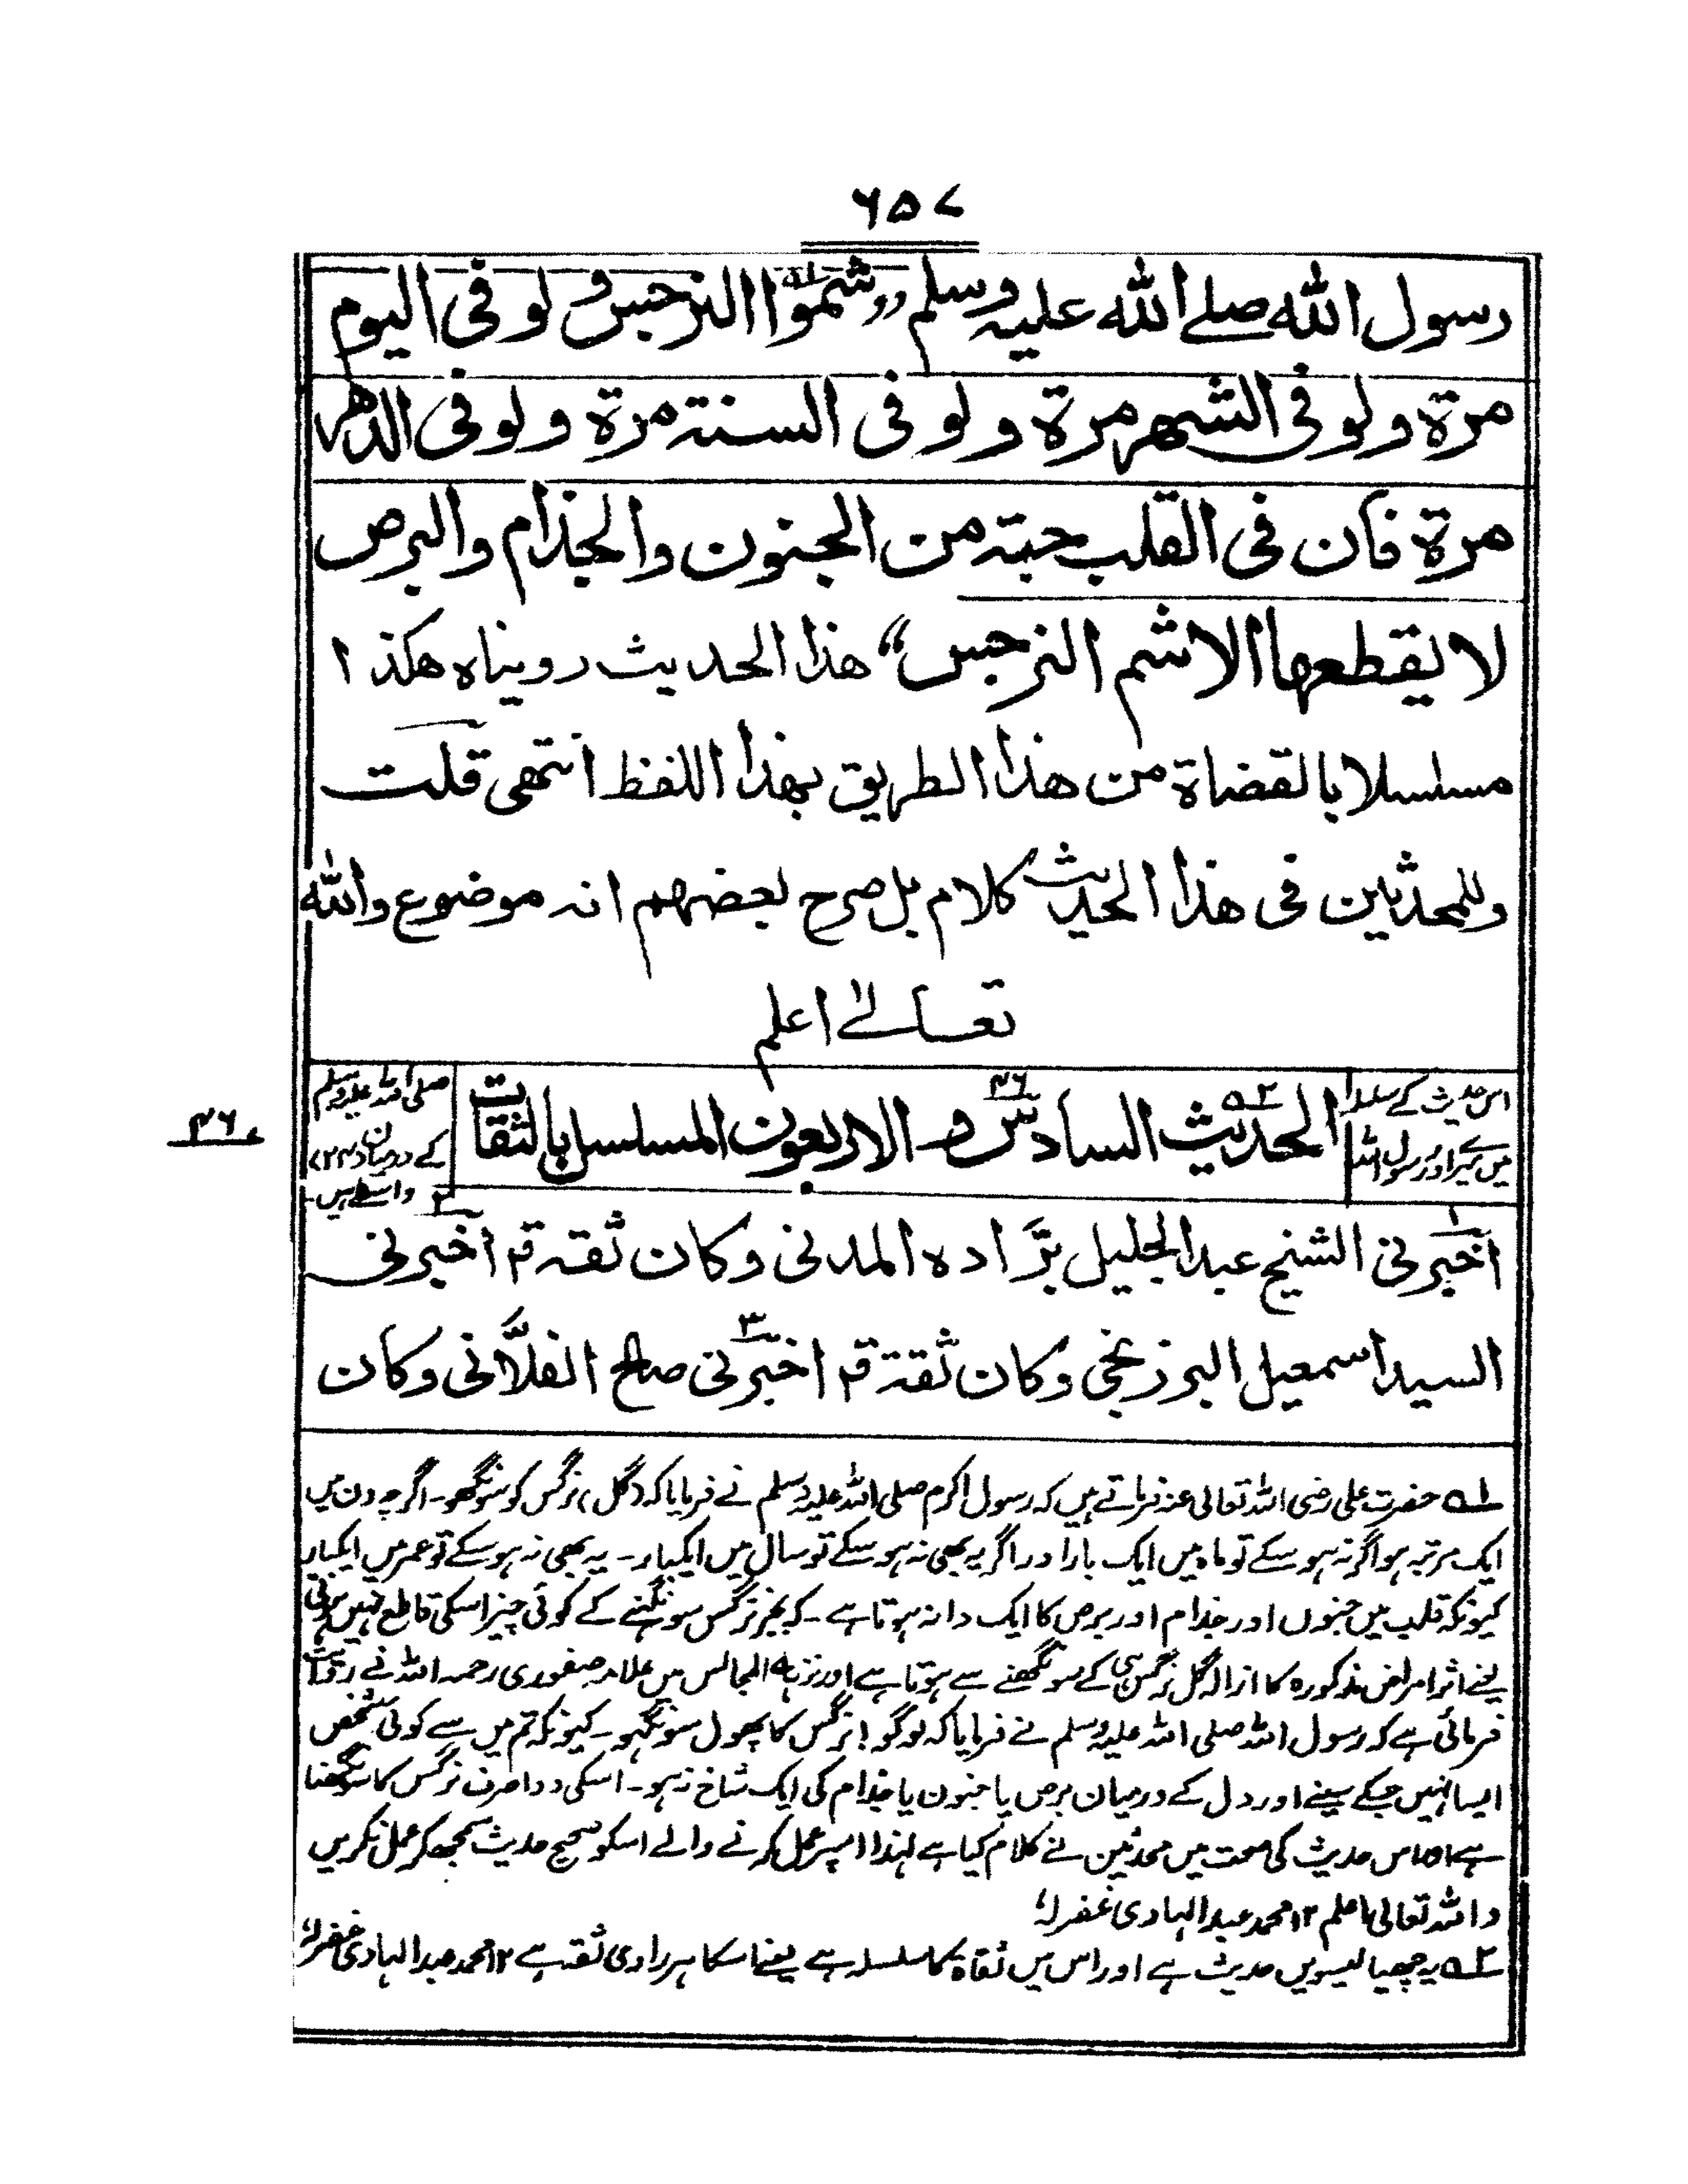 ۶۵۷
رسول الله صلے الله علیہ وسلم ”شموا النرجس ولو فی الیوم
مرة ولو فی الشهر مرة ولو فی السنۃ مرة ولو فی الدهر
مرة فان فی القلب حبۃ من الجنون والجذام والبرص
لا یقطعها الا شم النرجس“ هذا الحدیث رویناه هکذا
مسلسلا بالقضاة من هذا الطریق بهذا اللفظ انتهی قلت
وللمحدثین فی هذا الحدیث کلام بل صرح بعضهم انہ موضوع والله
تعالےٰ اعلم
اس حدیث کے سلسلہ
میں میرے اور رسول اللہ
الحدیث السادس والاربعون المسلسل بالثقات
صلی اللہ علیہ وسلم
کے درمیان (۲۴)
واسطے ہیں
۴۶
اخبرنی الشیخ عبد الجلیل برّاده المدنی وکان ثقۃ قم اخبرنی
السید اسمعیل البرزنجی وکان ثقۃ قم اخبرنی صالح الفلّانی وکان
۱ھ حضرت علی رضی اللہ تعالی عنہ فرماتے ہیں کہ رسول اکرم صلی اللہ علیہ وسلم نے فرمایا کہ (گل) نرگس کو سونگھو۔ اگرچہ دن میں
ایک مرتبہ ہو اگر نہ ہوسکے تو ماہ میں ایک بار اور اگر یہ بھی نہ ہوسکے تو سال میں ایکبار۔ یہ بھی نہ ہوسکے تو عمر میں ایکبار
کیونکہ قلب میں جنوں اور جذام اور برص کا ایک دانہ ہوتا ہے۔ کہ بجز نرگس سونگنے کے کوئی چیز اسکی قاطع نہیں ہوتی
یعنے اثر امراض مذکورہ کا ازالہ گل نرگس ہی کے سونگھنے سے ہوتا ہے اور نزہۃ المجالس میں علامہ صفوری رحمہ اللہ نے روایت
فرمائی ہے کہ رسول اللہ صلی اللہ علیہ وسلم نے فرمایا کہ لوگو! نرگس کا پھول سونگہو۔ کیونکہ تم میں سے کوئی شخص
ایسا نہیں جسکے سینے اور دل کے درمیان برص یا جنون یا جذام کی ایک شاخ نہ ہو۔ اسکی دوا صرف نرگس کا سونگھنا
ہے اھ اس حدیث کی صحت میں محدثین نے کلام کیا ہے لہذا اسپر عمل کرنے والے اسکو صحیح حدیث سمجھ کر عمل نکریں
واللہ تعالی اعلم ۱۲ محمد عبد الہادی غفرلہ
۲ھ یہ چھیالیسویں حدیث ہے اور اس میں ثقاۃ کا سلسلہ ہے یعنے اسکا ہر راوی ثقہ ہے ۱۲ محمد عبد الہادی غفرلہ